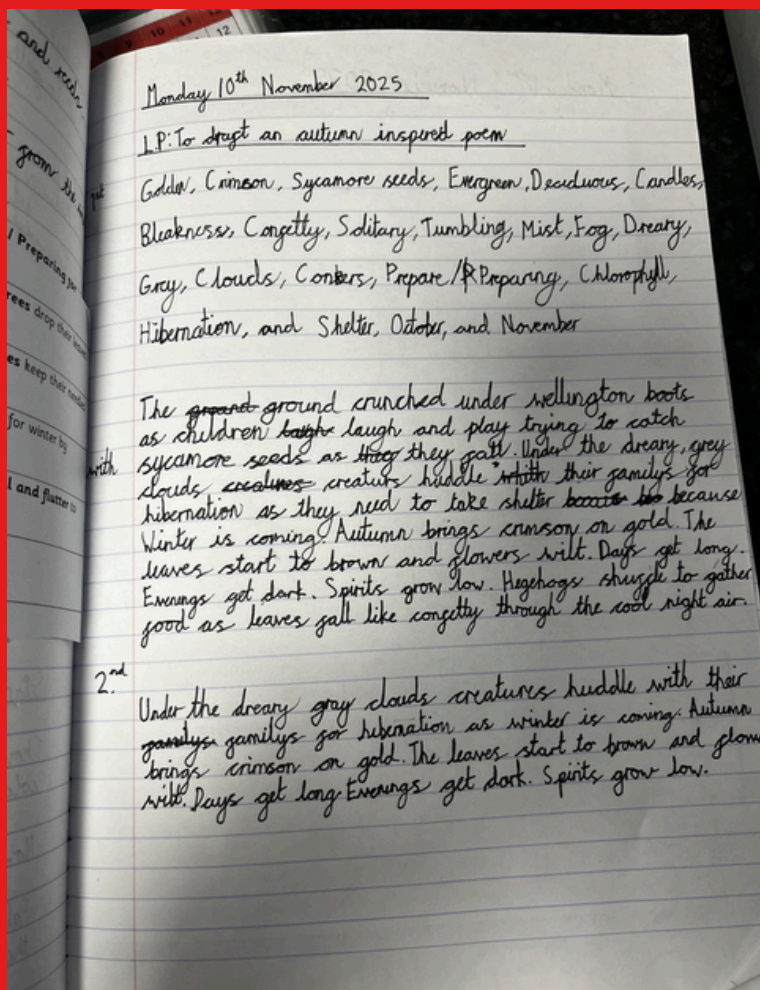 and seeds.
from the
/ Preparing for
rees drop their leaves
es keep their needles
for winter by
l and flutter to
9 10 11 12
12
Monday 10th November 2025
L.P: To draft an autumn inspired poem
1st
Golden, Crimson, Sycamore seeds, Evergreen, Deciduous, Candles,
Bleakness, Confetty, Solitary, Tumbling, Mist, Fog, Dreary,
Gray, Clouds, Conkers, Prepare/Preparing, Chlorophyll,
Hibernation, and Shelter, October, and November
The ground ground crunched under wellington boots
as children laugh laugh and play trying to catch
sycamore seeds as they they fall. Under the dreary, grey
with
clouds creatures creaturs huddle their familys for
hibernation as they need to take shelter because
Winter is coming. Autumn brings crimson on gold. The
leaves start to brown and flowers wilt. Days get long.
Evenings get dark. Spirits grow low. Hegehogs shuffle to gather
food as leaves fall like confetty through the cool night air.
2.nd
Under the dreary gray clouds creatures huddle with their
familys familys for hibernation as winter is coming. Autumn
brings crimson on gold. The leaves start to brown and flow
wilt. Days get long Evenings get dark. Spirits grow low.